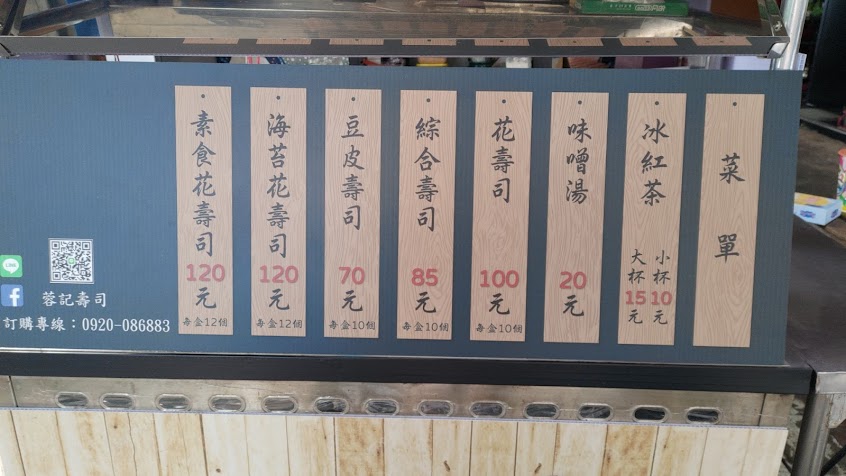 菜單
冰紅茶
小杯10元
大杯15元
味噌湯
20元
花壽司
100元
每盒10個
綜合壽司
85元
每盒10個
豆皮壽司
70元
每盒10個
海苔花壽司
120元
每盒12個
素食花壽司
120元
每盒12個
LINE
蓉記壽司
訂購專線：0920-086883